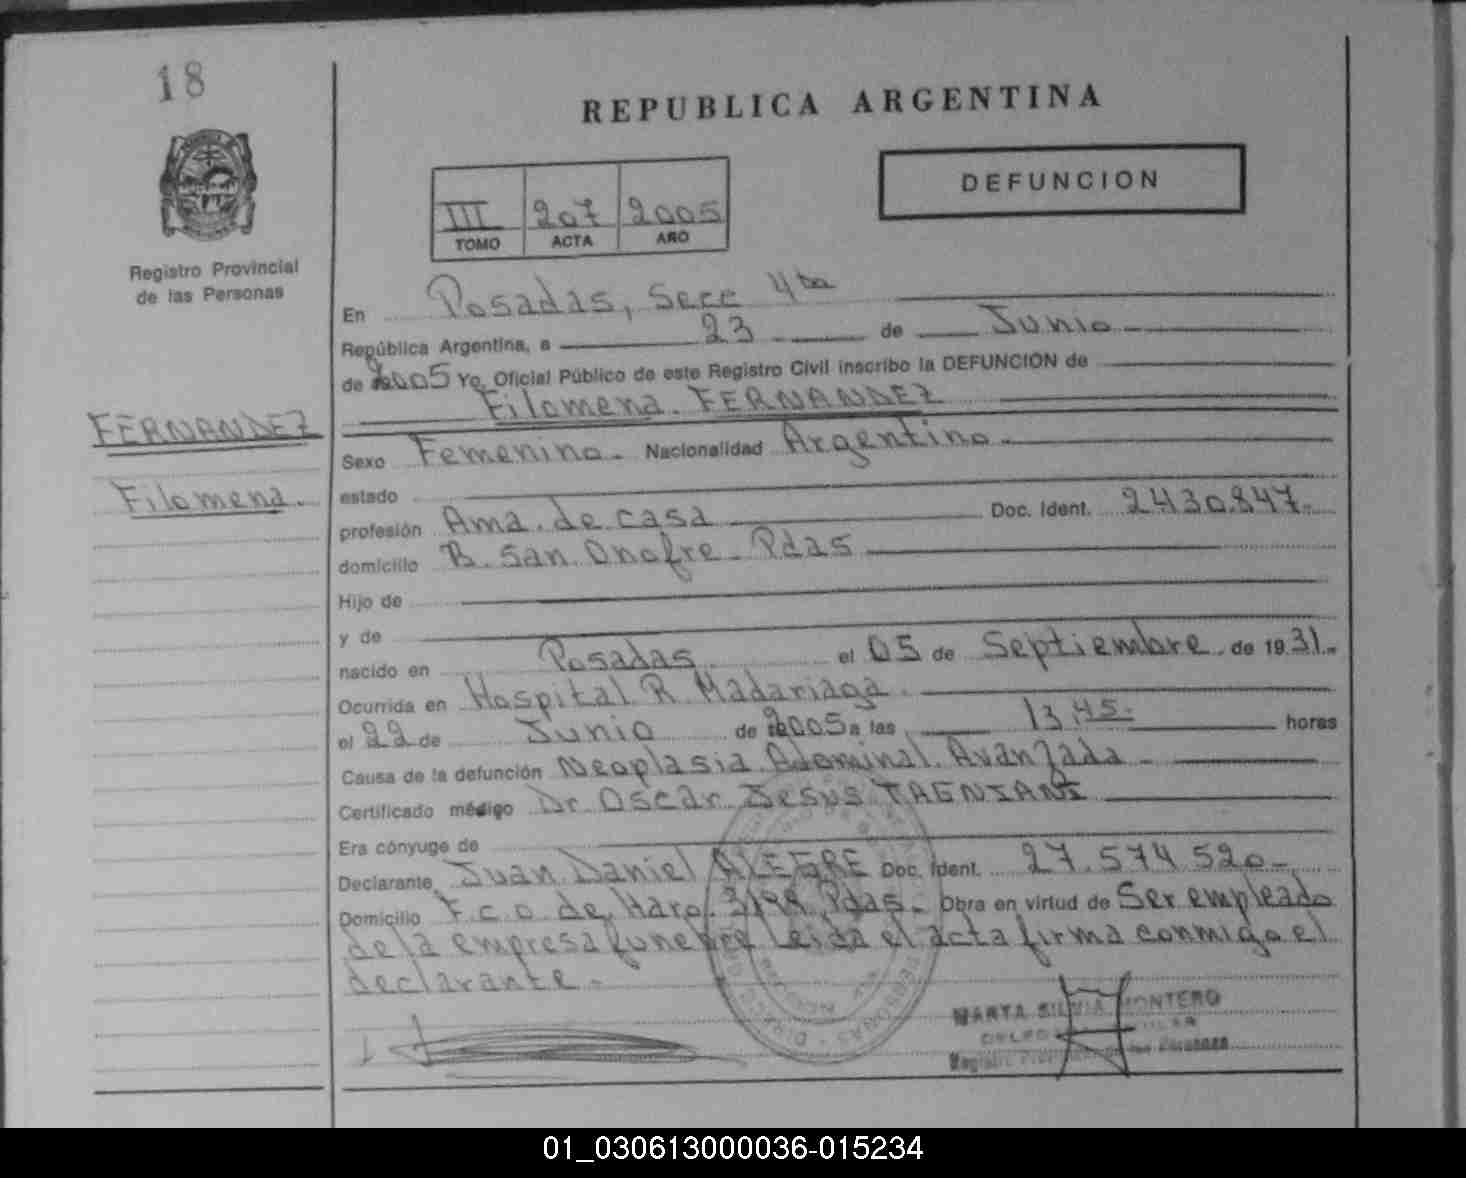 18
REPUBLICA ARGENTINA
DEFUNCION
III 207 2005
TOMO ACTA AÑO
Registro Provincial
de las Personas
En Posadas, Secc 4ta
República Argentina, a 23 de Junio
de 2005 Yo, Oficial Público de este Registro Civil inscribo la DEFUNCION de
Filomena. FERNANDEZ
FERNANDEZ
Filomena.
Sexo Femenino. Nacionalidad Argentino.
estado
profesión Ama de casa Doc. Ident. 2.430.847.
domicilio B. San Onofre - Pdas
Hijo de
y de
nacido en Posadas el 05 de Septiembre de 1931.
Ocurrida en Hospital R. Madariaga.
el 22 de Junio de 2005 a las 13,45. horas
Causa de la defunción Neoplasia Adominal Avanzada
Certificado médico Dr Oscar Jesus TAGNIANI
Era cónyuge de
Declarante Juan Daniel ALEGRE Doc. Ident. 27.574.520
Domicilio F.c.o. de Haro. 3198, Pdas. Obra en virtud de Ser empleado
de la empresa funebre Leida el acta firma conmigo el
declarante.
MARTA SILVIA MONTERO
Registro Provincial de las Personas
01_030613000036-015234